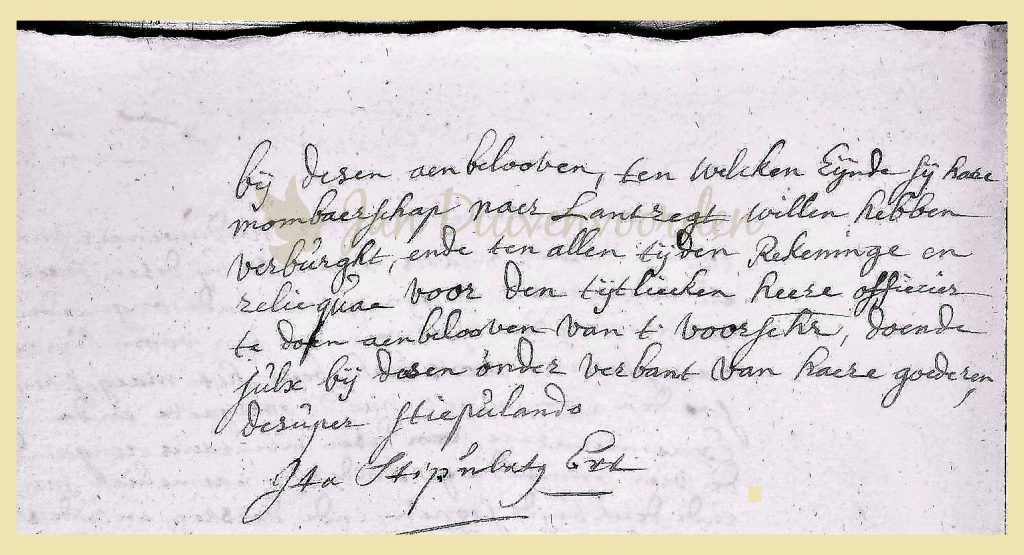 bij desen aenbelooven, ten welcken Eijnde sij haere
mombaerschap naer Lantregt willen hebben
verburght, ende ten allen tijden Rekeninge en
reliequae voor den tijtlicken heere officier
te doen aenbelooven van t' voorschr, doende
sulx bij desen onder verbant van haere goederen,
desuper stiepulando
Ita Stipulatg Ext
Jan Duivenvoorden